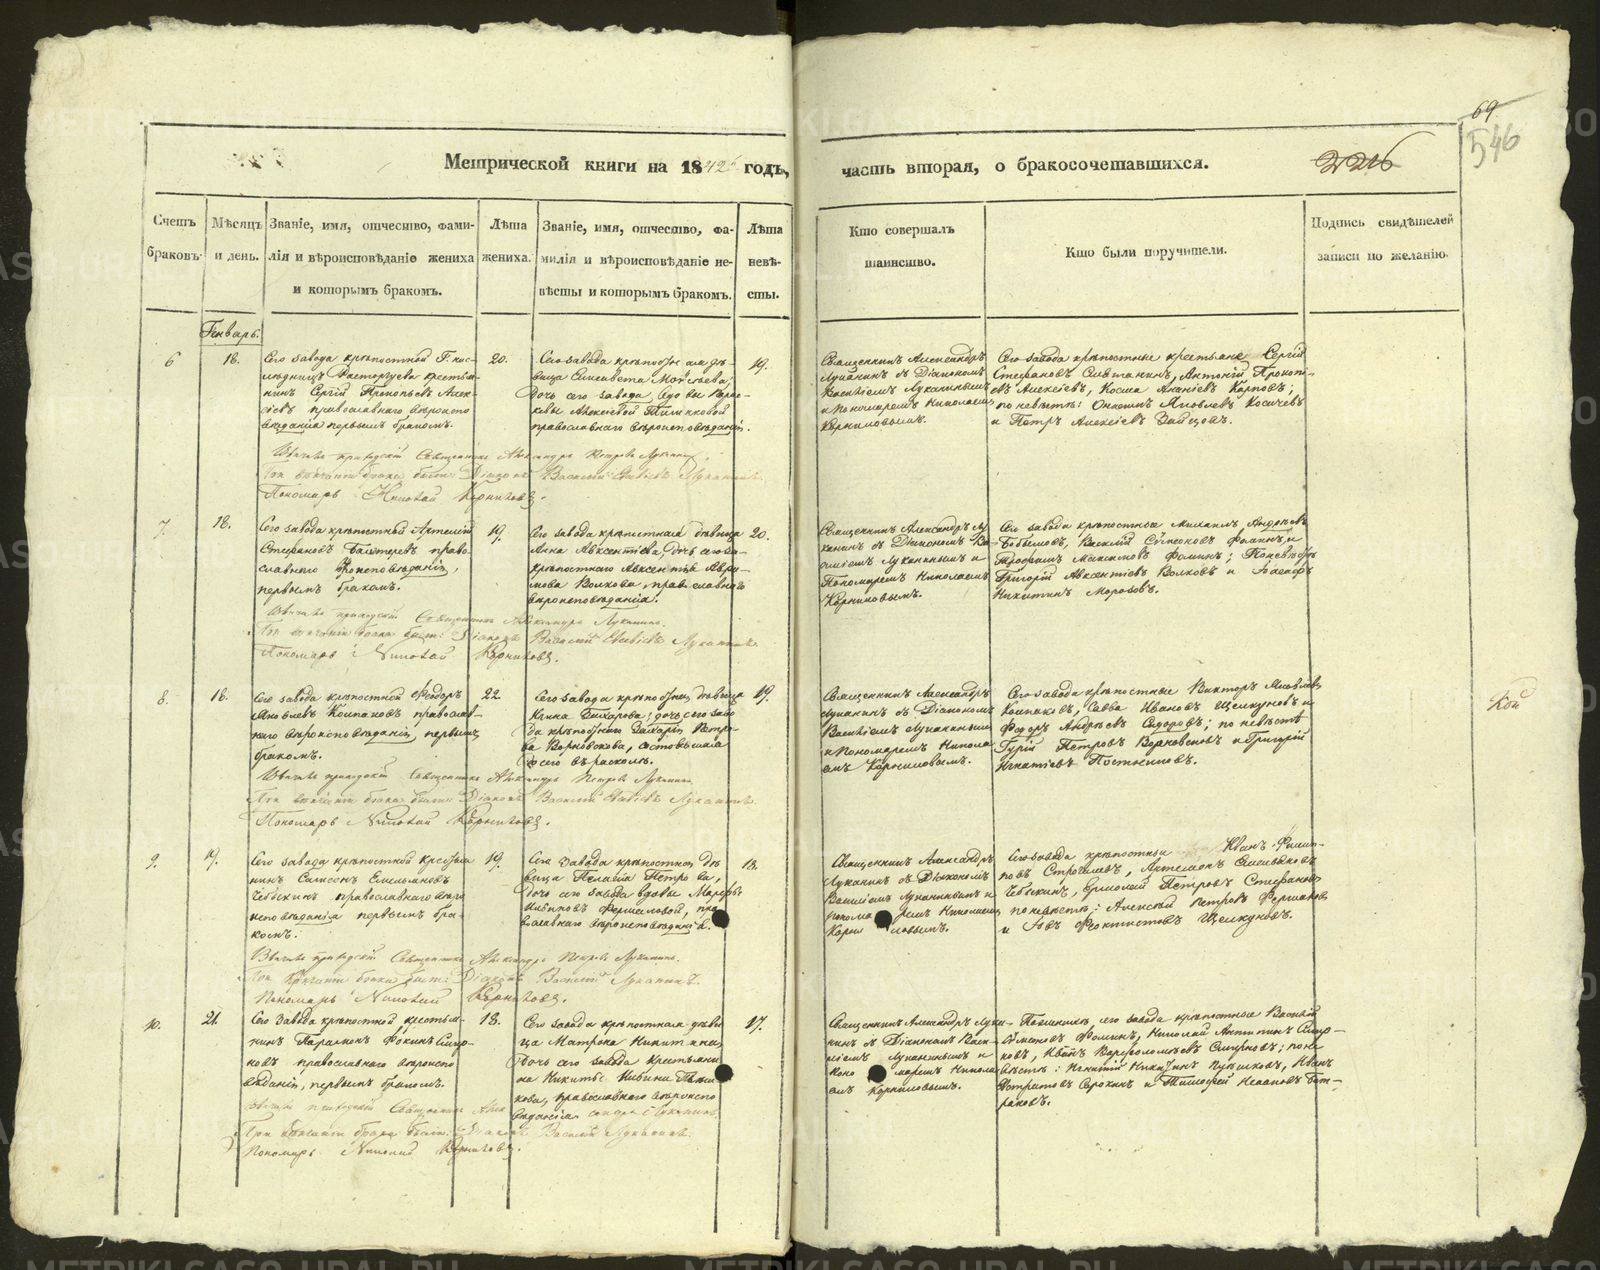 69
546
Метрической книги на 1842й годъ,
часть вторая, о бракосочетавшихся.
2216
Счетъ браковъ.
Мѣсяцъ и день.
Званіе, имя, отчество, фами-
лія и вѣроисповѣданіе жениха
и которымъ бракомъ.
Лѣта
жениха.
Званіе, имя, отчество, фа-
милія и вѣроисповѣданіе не-
вѣсты и которымъ бракомъ.
Лѣта
невѣ-
сты.
Кто совершалъ
таинство.
Кто были поручители.
Подпись свидѣтелей
записи по желанію.
Генварь.
6
18.
Сего завода крѣпостной
Расторгуева крестья-
нинъ Сергій Прокопьевъ Алек-
сѣевъ православнаго вѣроиспо-
вѣданія первымъ бракомъ.
20.
Сего завода крѣпостная дѣ-
вица Елисавета
дочь сего завода вдовы Парас-
кевы Алексѣевой
православнаго вѣроисповѣданія.
19.
Священникъ Александръ
Луканинъ съ Діакономъ
Василіемъ Луканинымъ
и Пономаремъ Николаемъ
Корниловымъ.
Сего завода крѣпостные крестьяне Сергій
Стефановъ Антоній Прокопь-
евъ Алексѣевъ, Косма Ананіевъ Карповъ;
по невѣстѣ: Яковлевъ Косичевъ
и Петръ Алексѣевъ Зайцовъ.
Вѣнчалъ приходскій Священникъ Александръ Петровъ Луканинъ.
При вѣнчаніи брака были: Діаконъ Василій Луканинъ.
Пономарь Николай Корниловъ.
7.
18.
Сего завода крѣпостной Артемій
Стефановъ право-
славнаго вѣроисповѣданія,
первымъ бракомъ.
19.
Сего завода крѣпостная дѣвица
Анна Авксентіева, дочь сего за-
крѣпостнаго Авксентія Авра-
мова Волкова, православнаго
вѣроисповѣданія.
20.
Священникъ Александръ Лу-
канинъ съ Діакономъ Ва-
силіемъ Луканинымъ и
Пономаремъ Николаемъ
Корниловымъ.
Сего завода крѣпостные Михаилъ
Бобылковъ, Василій Симеоновъ Фоминъ и
Трофимъ Максимовъ Фоминъ; По невѣстѣ
Григорій Авксентіевъ Волковъ и
Никитинъ Морозовъ.
Вѣнчалъ приходскій Священникъ Александръ Луканинъ.
При вѣнчаніи брака были: Діаконъ Василій Луканинъ.
Пономарь Николай Корниловъ.
8.
18.
Сего завода крѣпостной Ѳеодоръ
Яковлевъ православ-
наго вѣроисповѣданія, первымъ
бракомъ.
22.
Сего завода крѣпостная дѣвица
Захарова; дочь сего заво-
да крѣпостнаго Захарія Петро-
ва состоявшая
до сего въ расколѣ.
19.
Священникъ Александръ
Луканинъ съ Діакономъ
Василіемъ Луканинымъ
и Пономаремъ Никола-
емъ Корниловымъ.
Сего завода крѣпостные Викторъ Яковлевъ
Савва Ивановъ Щелкуновъ и
Ѳедоръ Андреевъ Сидоровъ; по невѣстѣ
Гурій Петровъ и Григорій
Игнатіевъ Постниковъ.
Кой
Вѣнчалъ приходскій Священникъ Александръ Петровъ Луканинъ.
При вѣнчаніи брака были: Діаконъ Василій Луканинъ.
Пономарь Николай Корниловъ.
9.
19.
Сего завода крѣпостной крестья-
нинъ Самсонъ Емельяновъ
православнаго вѣро-
исповѣданія первымъ бра-
комъ.
19.
Сего завода крѣпостная дѣ-
вица Пелагія Петрова,
дочь сего завода вдовы Марфы
пра-
вославнаго вѣроисповѣданія.
18.
Священникъ Александръ
Луканинъ съ Діакономъ
Василіемъ Луканинымъ и
понома ремъ Николаемъ
Корни ловымъ.
Сего завода крѣпостные Иванъ Филип-
повъ Емельяновъ
Ермолай Петровъ Стефановъ
по невѣстѣ: Алексѣй Петровъ
и Іовъ Ѳеоктистовъ Щелкуновъ.
Вѣнчалъ приходскій Священникъ Александръ Петровъ Луканинъ.
При вѣнчаніи брака были: Діаконъ Василій Луканинъ.
Пономарь Николай Корниловъ.
10.
21.
Сего завода крѣпостной крестья-
нинъ Парамонъ Фокинъ Смир-
новъ православнаго вѣроиспо-
вѣданія, первымъ бракомъ.
18.
Сего завода крѣпостная дѣви-
ца Матрона Никитина,
дочь сего завода крестьяни-
на Никиты
православнаго вѣроиспо-
вѣданія.
17.
Священникъ Александръ Лука-
нинъ съ Діакономъ Васи-
ліемъ Луканинымъ и
поно маремъ Никола-
емъ Корниловымъ.
сего завода крѣпостные Василій
Симеоновъ Фоминъ, Николай Антипинъ Смир-
новъ, Иванъ Варѳоломѣевъ Смирновъ; по не-
вѣстѣ: Игнатій Никитинъ Иванъ
Сорокинъ и Тимофей Ивановъ
Вѣнчалъ приходскій Священникъ Александръ Луканинъ.
При вѣнчаніи брака были: Діаконъ Василій Луканинъ.
Пономарь Николай Корниловъ.